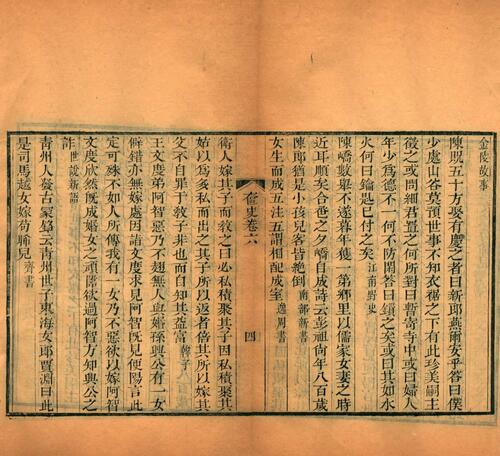 金陵故事
陳貺五十方娶有慶之者曰新郎燕爾安乎答曰僕
少處山谷莫預世事不知衣裾之下有此珍美嗣主
徵之或問細君置之何所對曰暫寄寺中或曰婦人
年少爲德不一何不防閑答曰鎖之矣或曰其如水
火何曰鑰匙已付之矣江南野史
陳嶠數舉不遂暮年獲一第鄉里以儒家女妻之時
近耳順矣合卺之夕嶠自成詩云彭祖尙年八百歲
陳郎猶是小孩兒客皆絶倒南部新書
女生而成五注五謂相配成室逸周書
奩史卷六
四
衛人嫁其子而敎之曰必私積聚其子因私積聚其
姑以爲多私而出之其子所以返者倍其所以嫁其
父不自罪于敎子非也而自知其益富韓子
王文度弟阿智惡乃不翅無人與婚孫興公有一女
僻錯亦無嫁處因詣文度求見阿智旣見便陽言此
定可殊不如人所傳我有一女乃不惡欲以嫁阿智
文度欣然旣成婚女之頑嚚欲過阿智方知興公之
詐世說新語
靑州人發古冢銘云靑州世子東海女郎賈淵曰此
是司馬越女嫁荀晞兒齊書